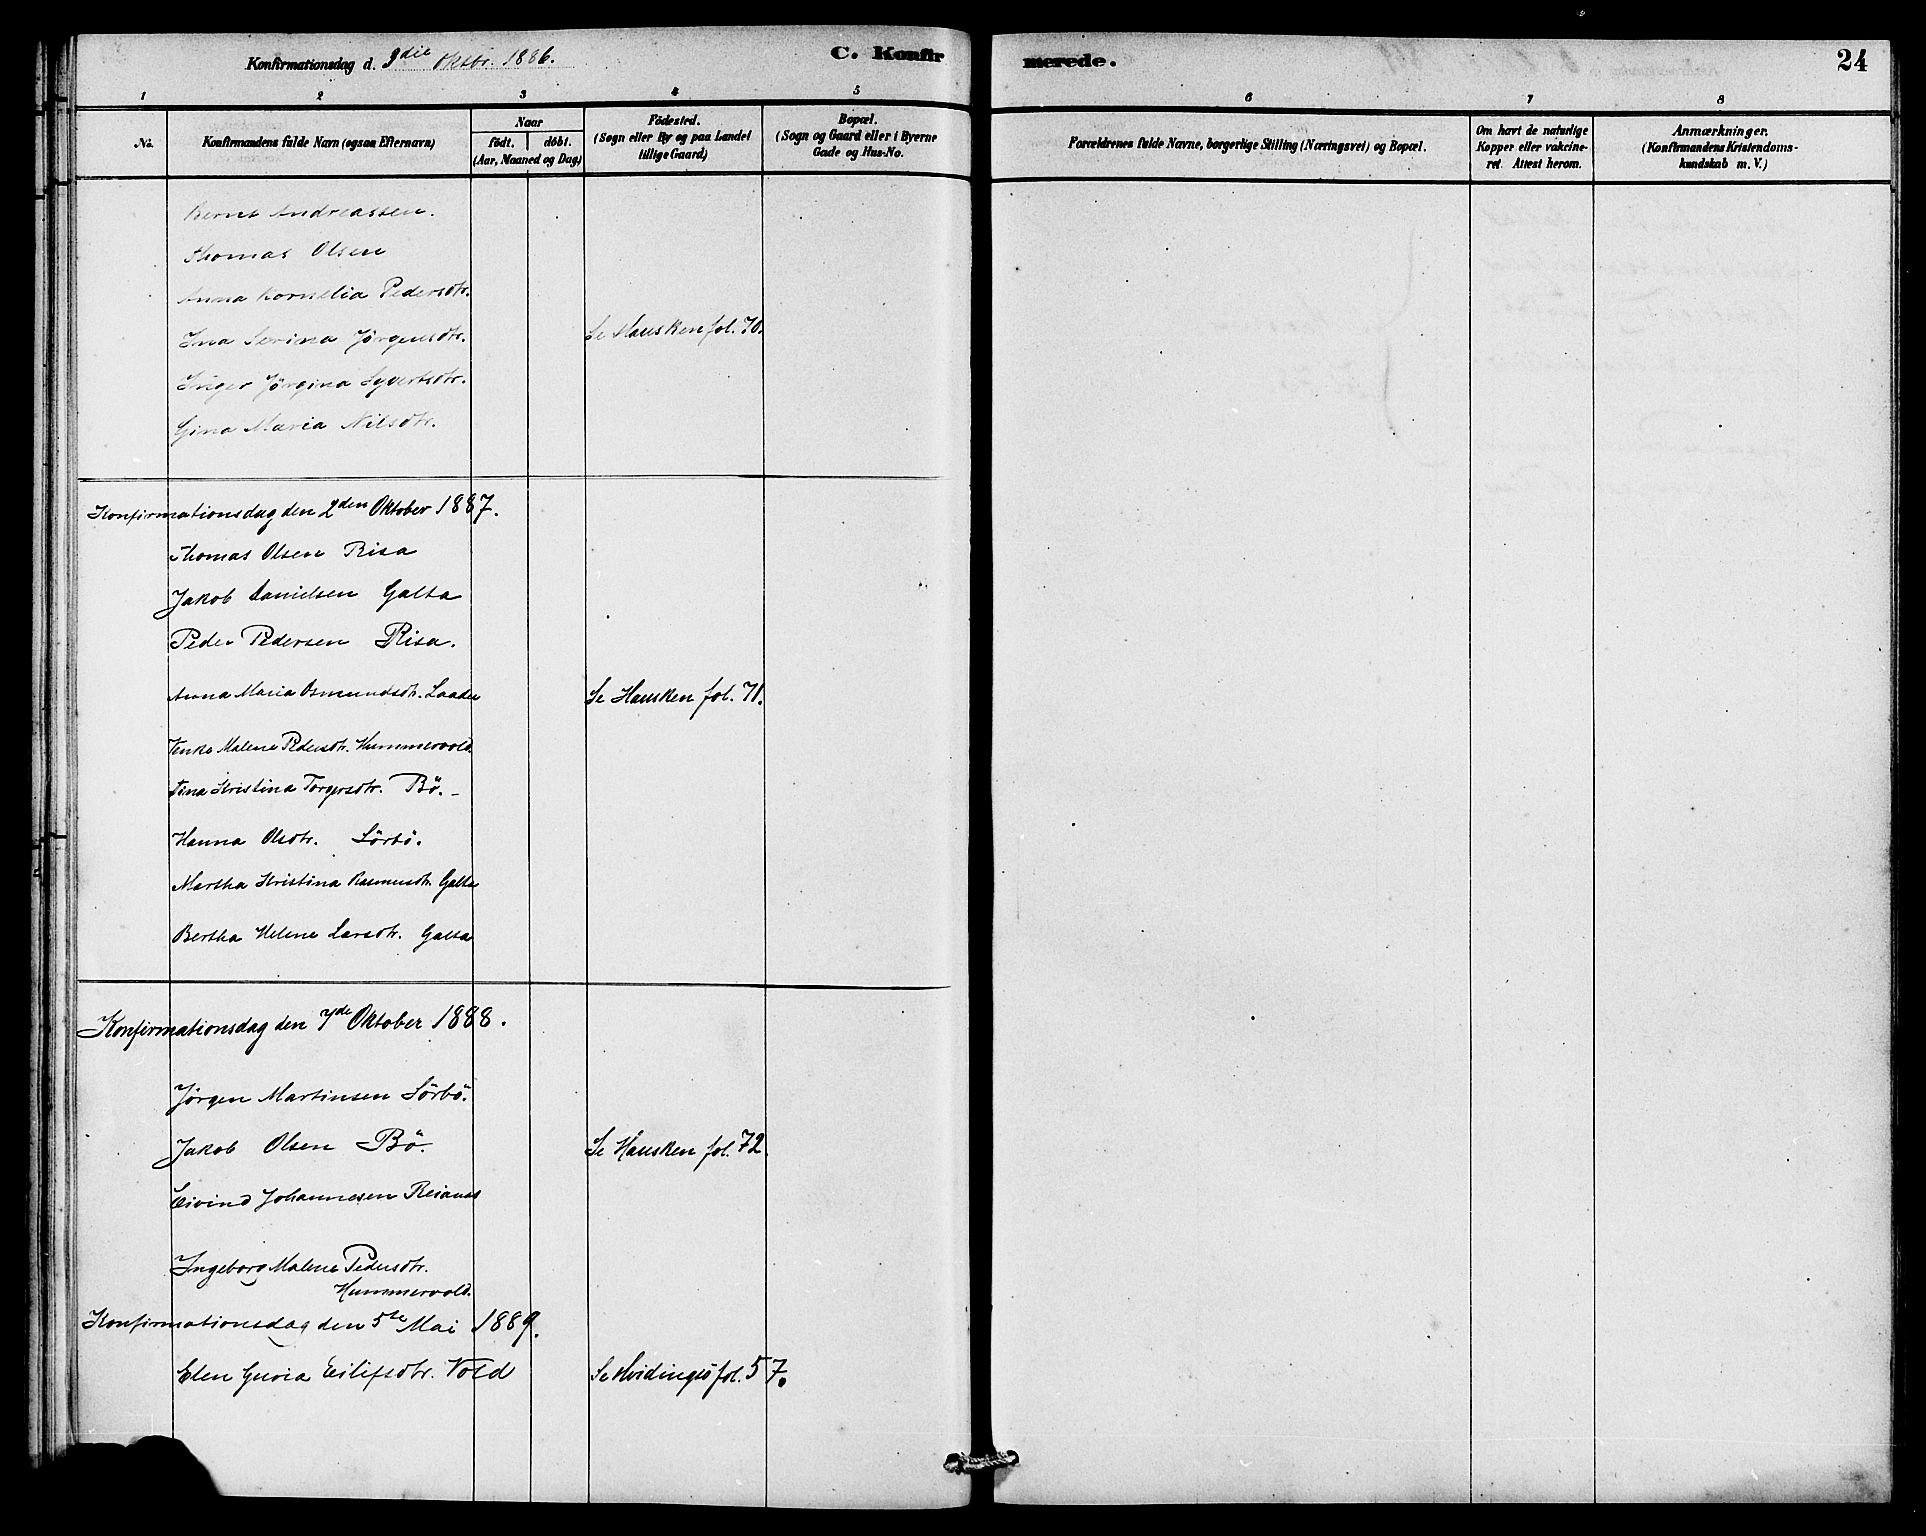 Konfirmationsdag d. 3die Oktbr. 1886.
C. Konfir
merede.
24
1 2 3 4 5 6 7 8
No.
Konfirmandens fulde Navn (ogsaa Efternavn)
Naar
födt. döbt.
(Aar, Maaned og Dag)
Födested.
(Sogn eller By og paa Landet
tillige Gaard)
Bopæl.
(Sogn og Gaard eller i Byerne
Gade og Hus-No.
Forældrenes fulde Navne, borgerlige Stilling (Næringsvei) og Bopæl.
Om havt de naturlige
Kopper eller vakcine-
ret. Attest herom.
Anmærkninger.
(Konfirmandens Kristendoms-
kundskab m. V.)
Bernt Andreassen.
Thomas Olsen
Anna Kornelia Pedersdtr.
Ina Serina Jörgensdtr. Se Hausken fol. 70.
Inger Jörgina Syvertsdtr.
Gina Maria Nilsdtr.
Konfirmationsdag den 2den Oktober 1887.
Thomas Olsen Risa
Jakob Danielsen Galta
Peder Pedersen Risa.
Anna Maria Osmundsdtr. Laadee Se Hausken fol. 71.
Malene Pedersdtr. Hummervold.
Tina Kristina Torgersdtr. Bö.
Hanna Olsdtr. Sörbö.
Martha Kristina Rasmusdtr. Galta
Bertha Helene Larsdtr. Galta
Konfirmationsdag den 7de Oktober 1888.
Jörgen Martinsen Sörbö.
Jakob Olsen Bö. Se Hausken fol. 72.
Eivind Johannesen Reianes
Ingeborg Malene Pedersdtr.
Hummervold.
Konfirmationsdag den 5te Mai 1889.
Elen Eilifsdtr. Vold Se Hvidingsö fol. 57.